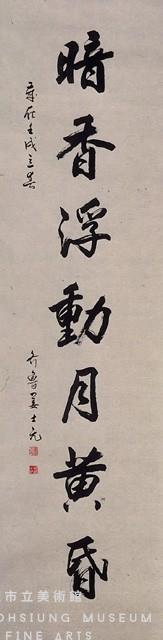 暗香浮動月黃昏
歲在壬戌立春
齊魯姜士元
市立美術館
OHSIUNG MUSEUM
FINE ARTS